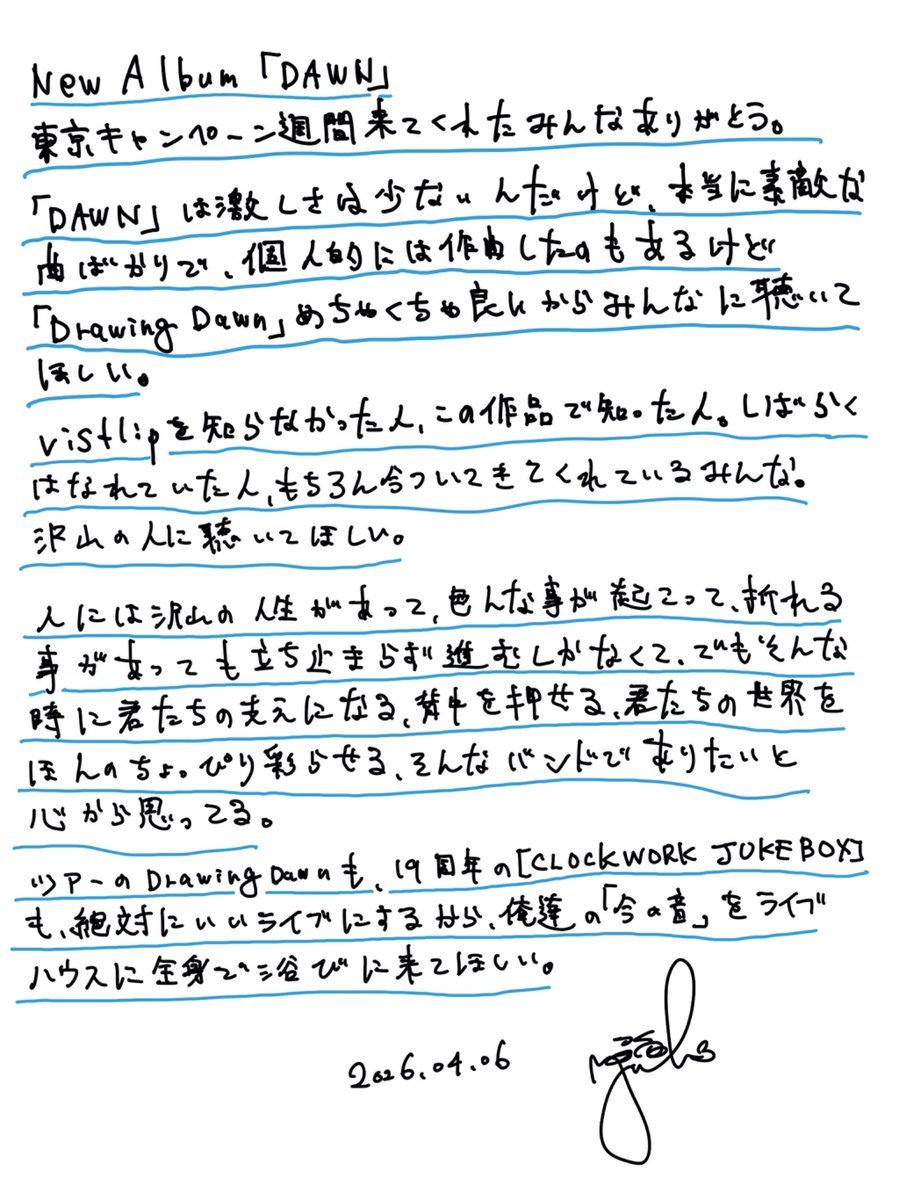 New Album「DAWN」
東京キャンペーン週間来てくれたみんなありがとう。
「DAWN」は激しさは少ないんだけど、本当に素敵な
曲ばかりで、個人的には作曲したのもあるけど
「Drawing Dawn」めちゃくちゃ良いからみんなに聴いて
ほしい。
vistlipを知らなかった人、この作品で知った人。しばらく
はなれていた人、もちろん今ついてきてくれているみんな。
沢山の人に聴いてほしい。
人には沢山の人生があって、色んな事が起こって、折れる
事があっても立ち止まらず進むしかなくて、でもそんな
時に君たちの支えになる、背中を押せる、君たちの世界を
ほんのちょっぴり彩らせる、そんなバンドでありたいと
心から思ってる。
ツアーのDrawing Dawnも、19周年の[CLOCKWORK JUKEBOX]
も、絶対にいいライブにするから、俺達の「今の音」をライブ
ハウスに全身で浴びに来てほしい。
2026.04.06